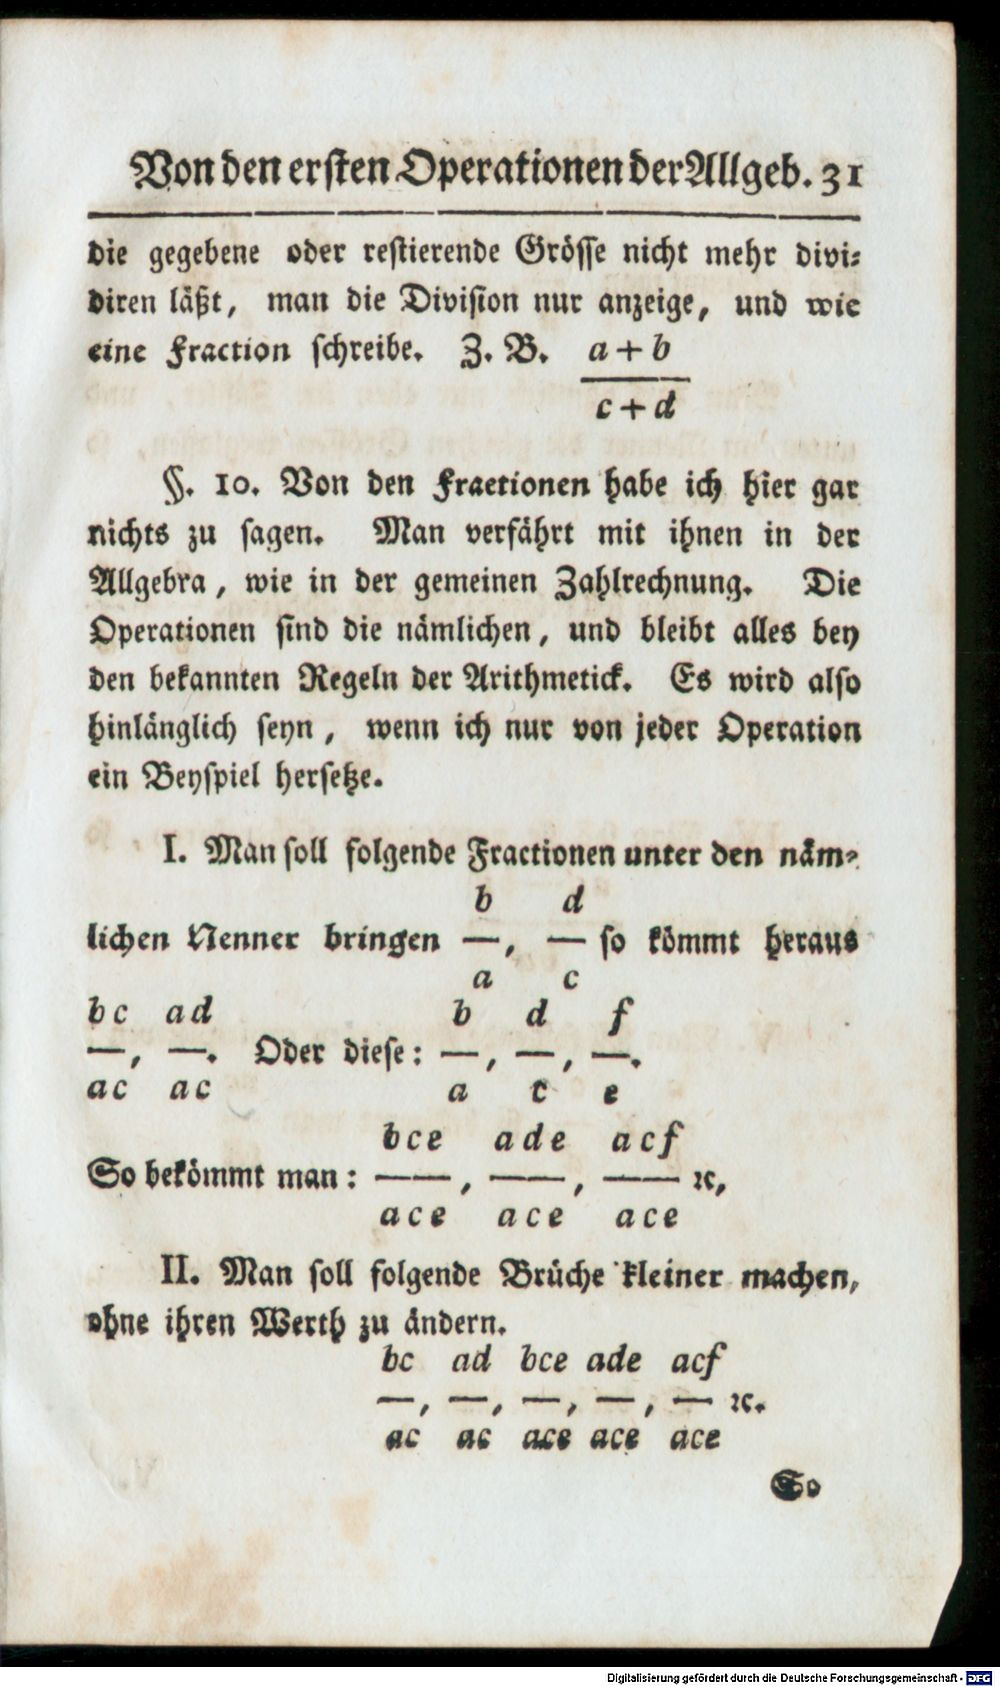 Von den ersten Operationen der Allgeb. 31
die gegebene oder restierende Grösse nicht mehr divi-
diren läßt, man die Division nur anzeige, und wie
eine Fraction schreibe. Z. B. a + b
c + d
§. 10. Von den Fractionen habe ich hier gar
nichts zu sagen. Man verfährt mit ihnen in der
Allgebra, wie in der gemeinen Zahlrechnung. Die
Operationen sind die nämlichen, und bleibt alles bey
den bekannten Regeln der Arithmetick. Es wird also
hinlänglich seyn, wenn ich nur von jeder Operation
ein Beyspiel hersetze.
I. Man soll folgende Fractionen unter den näm-
b d
lichen Nenner bringen —, — so kömmt heraus
a c
bc ad b d f
—, —. Oder diese: —, —, —.
ac ac a c e
bce ade acf
So bekömmt man: ——, ——, —— ꝛc,
ace ace ace
II. Man soll folgende Brüche kleiner machen,
ohne ihren Werth zu ändern.
bc ad bce ade acf
—, —, —, —, — ꝛc.
ac ac ace ace ace
So
Digitalisierung gefördert durch die Deutsche Forschungsgemeinschaft - DFG